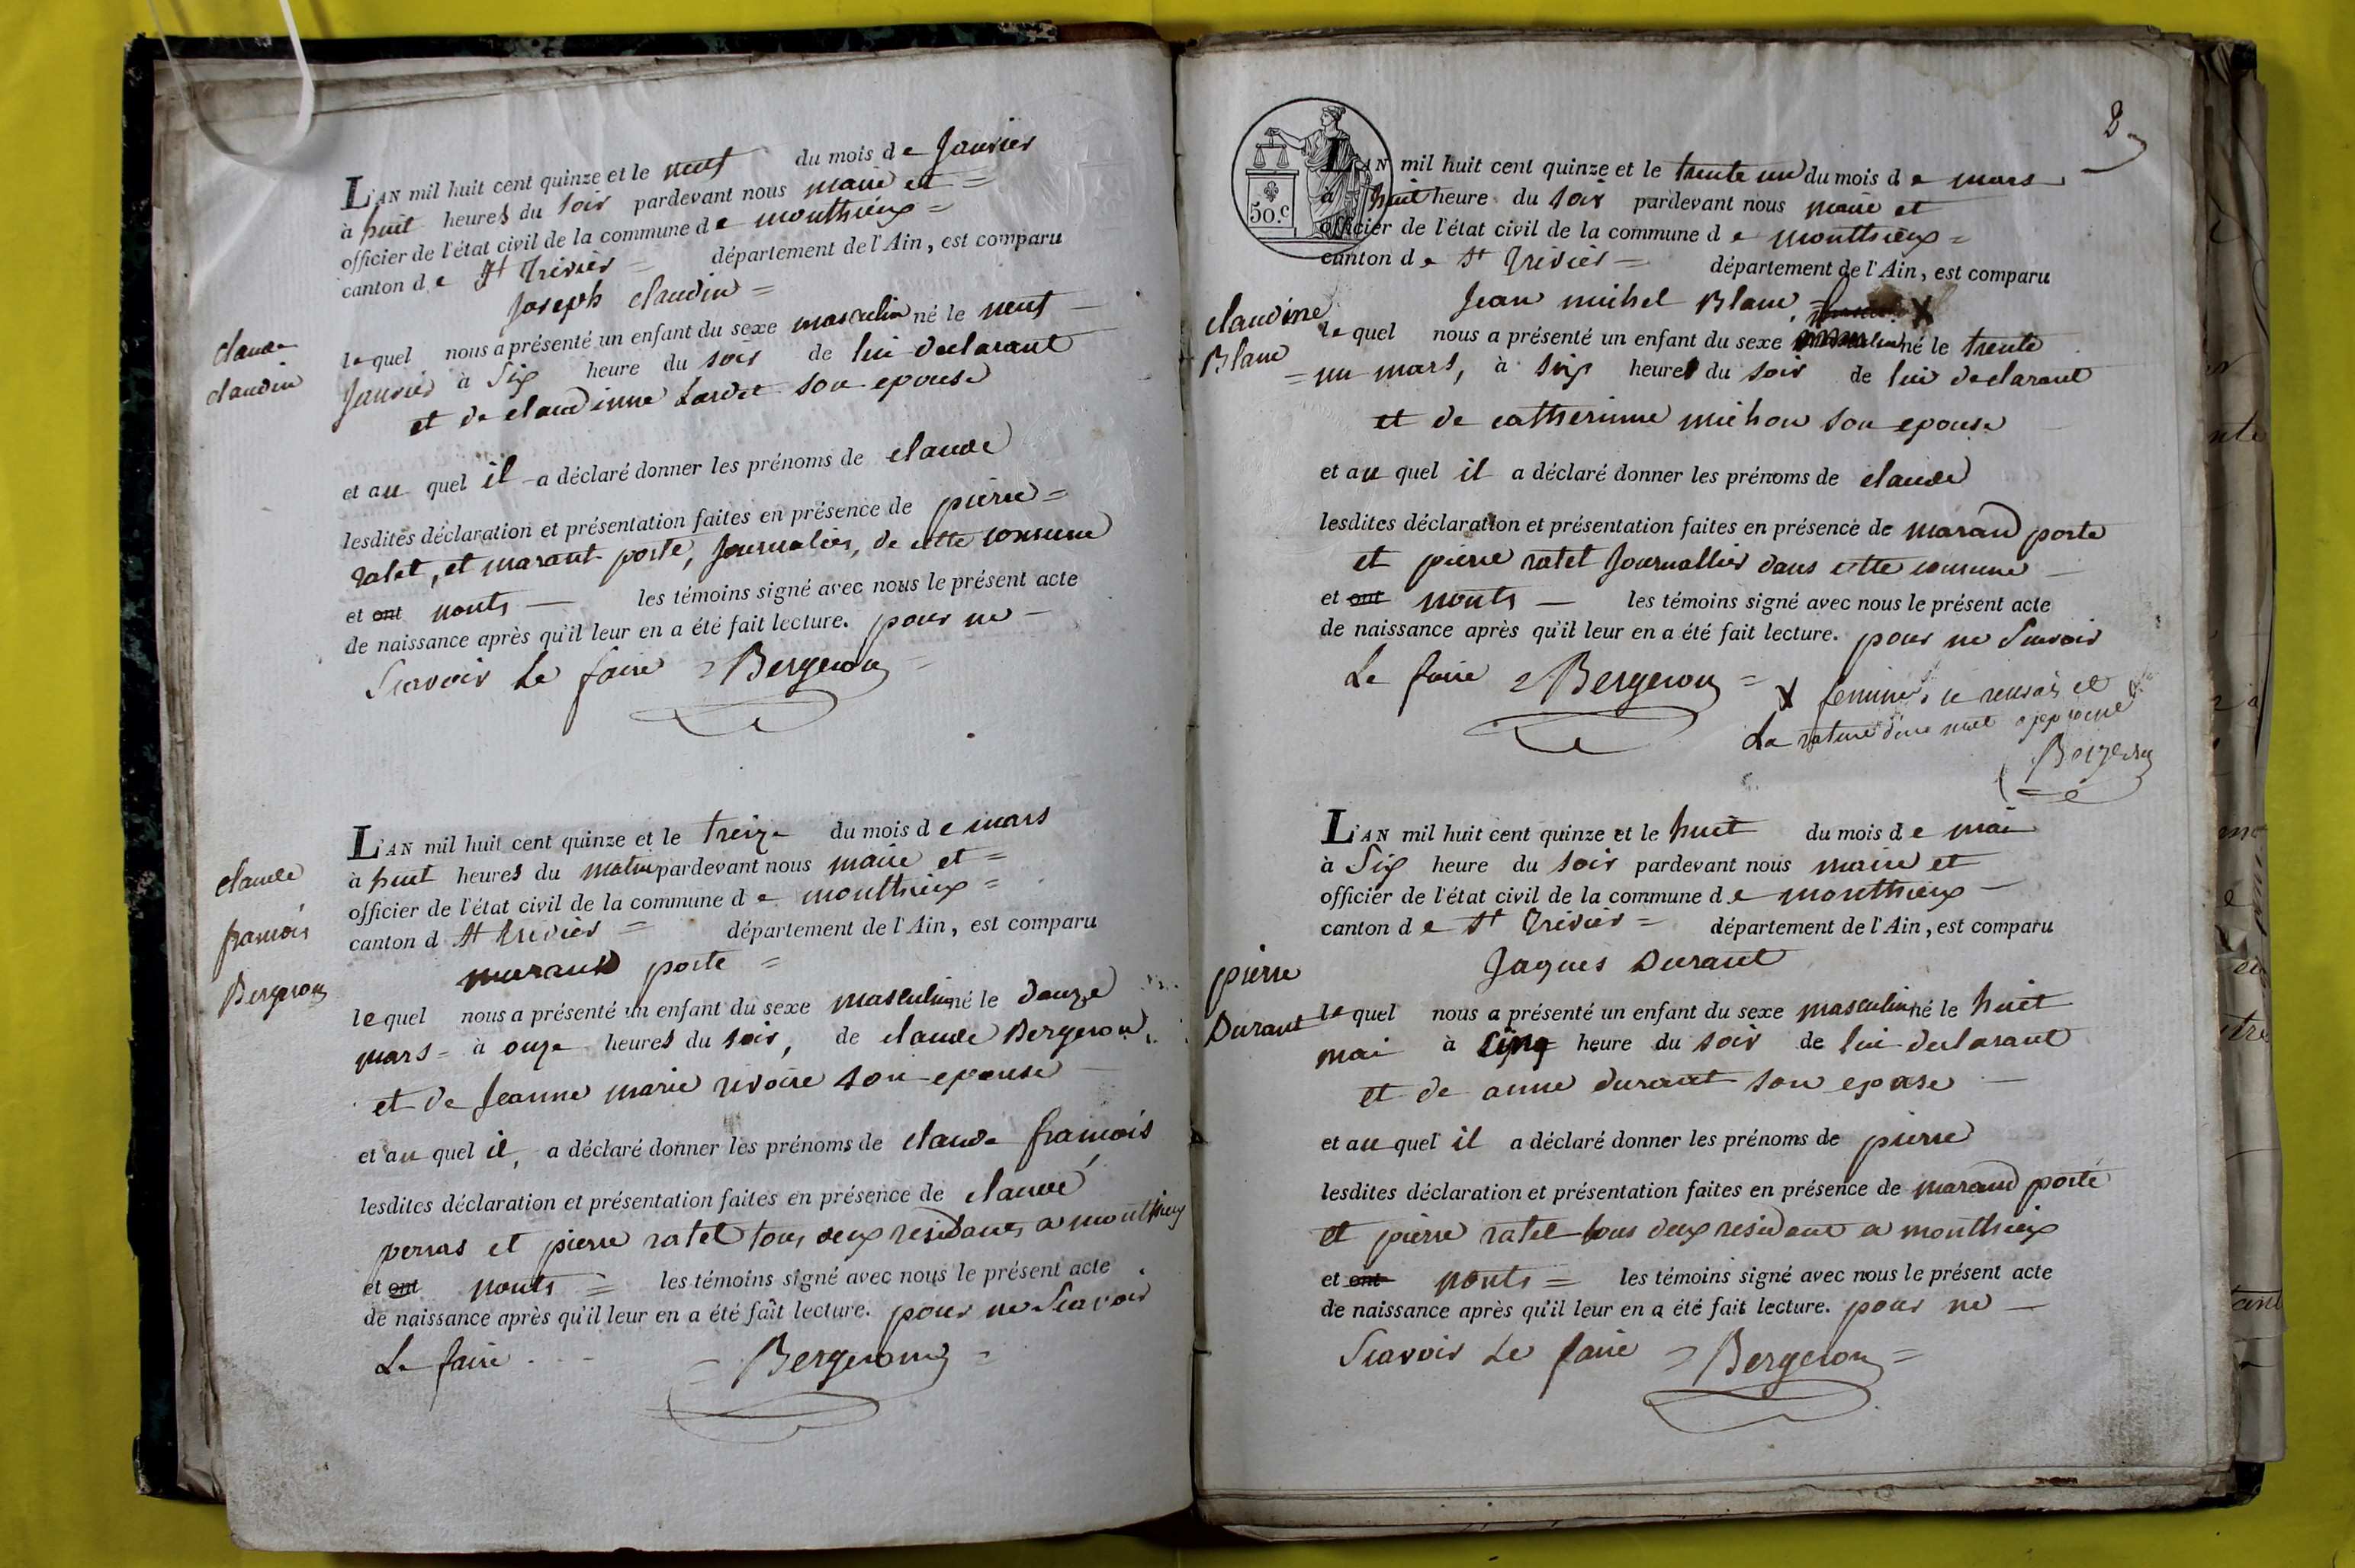 L'AN mil huit cent quinze et le neuf du mois de Janvier
à huit heures du soir pardevant nous maire et =
officier de l'état civil de la commune de monthieux =
canton de St Trivier = département de l'Ain, est comparu
Joseph claudin =
claude
claudin
lequel nous a présenté un enfant du sexe masculin né le neuf
Janvier à Six heure du soir de lui declarant
et de claudinne Lardet son epouse
et au quel il a déclaré donner les prénoms de claude
lesdites déclaration et présentation faites en présence de pierre =
ratel, et marant porte, Journalier, de cette commune
et ont nonts — les témoins signé avec nous le présent acte
de naissance après qu'il leur en a été fait lecture. pour ne —
Scavoir Le faire = Bergeron =
L'AN mil huit cent quinze et le treize du mois de mars
à huit heures du matin pardevant nous maire et =
officier de l'état civil de la commune de monthieux =
canton d St trivier = département de l'Ain, est comparu
claude
francois
Bergeron
marand porte =
lequel nous a présenté un enfant du sexe masculin né le douze
mars = à onze heures du soir, de claude Bergeron
et de Jeanne marie rivoire son epouse
et au quel il, a déclaré donner les prénoms de claude francois
lesdites déclaration et présentation faites en présence de claude
perras et pierre ratel tous deux residants a monthieux
et ont nonts = les témoins signé avec nous le présent acte
de naissance après qu'il leur en a été fait lecture. pour ne Scavoir
Le faire = Bergeron =
2
50.c
L'AN mil huit cent quinze et le trente un du mois de mars
à huit heure du soir pardevant nous maire et
officier de l'état civil de la commune de monthieux =
canton de St Trivier = département de l'Ain, est comparu
Jean michel Blanc X
claudine
Blanc
lequel nous a présenté un enfant du sexe né le trente
= un mars, à six heures du soir de lui declarant
et de catherinne michon son epouse
et au quel il a déclaré donner les prénoms de claude
lesdites déclaration et présentation faites en présence de marand porte
et pierre ratel Journallier dans cette commune —
et ont nonts — les témoins signé avec nous le présent acte
de naissance après qu'il leur en a été fait lecture. pour ne Scavoir
Le faire = Bergeron =
X feminin, ce renvoi et
La rature d'un mot approuvé
Bergeron
L'AN mil huit cent quinze et le huit du mois de mai
à Six heure du soir pardevant nous maire et
officier de l'état civil de la commune de monthieux —
canton de St Trivier = département de l'Ain, est comparu
Jaques Durant
pierre
Durant
lequel nous a présenté un enfant du sexe masculin né le huit
mai à cinq heure du soir de lui declarant
et de anne durant son epose —
et au quel il a déclaré donner les prénoms de pierre
lesdites déclaration et présentation faites en présence de marand porte
et pierre ratel tous deux resident a monthieux
et ont nonts = les témoins signé avec nous le présent acte
de naissance après qu'il leur en a été fait lecture. pour ne —
Scavoir Le faire = Bergeron =